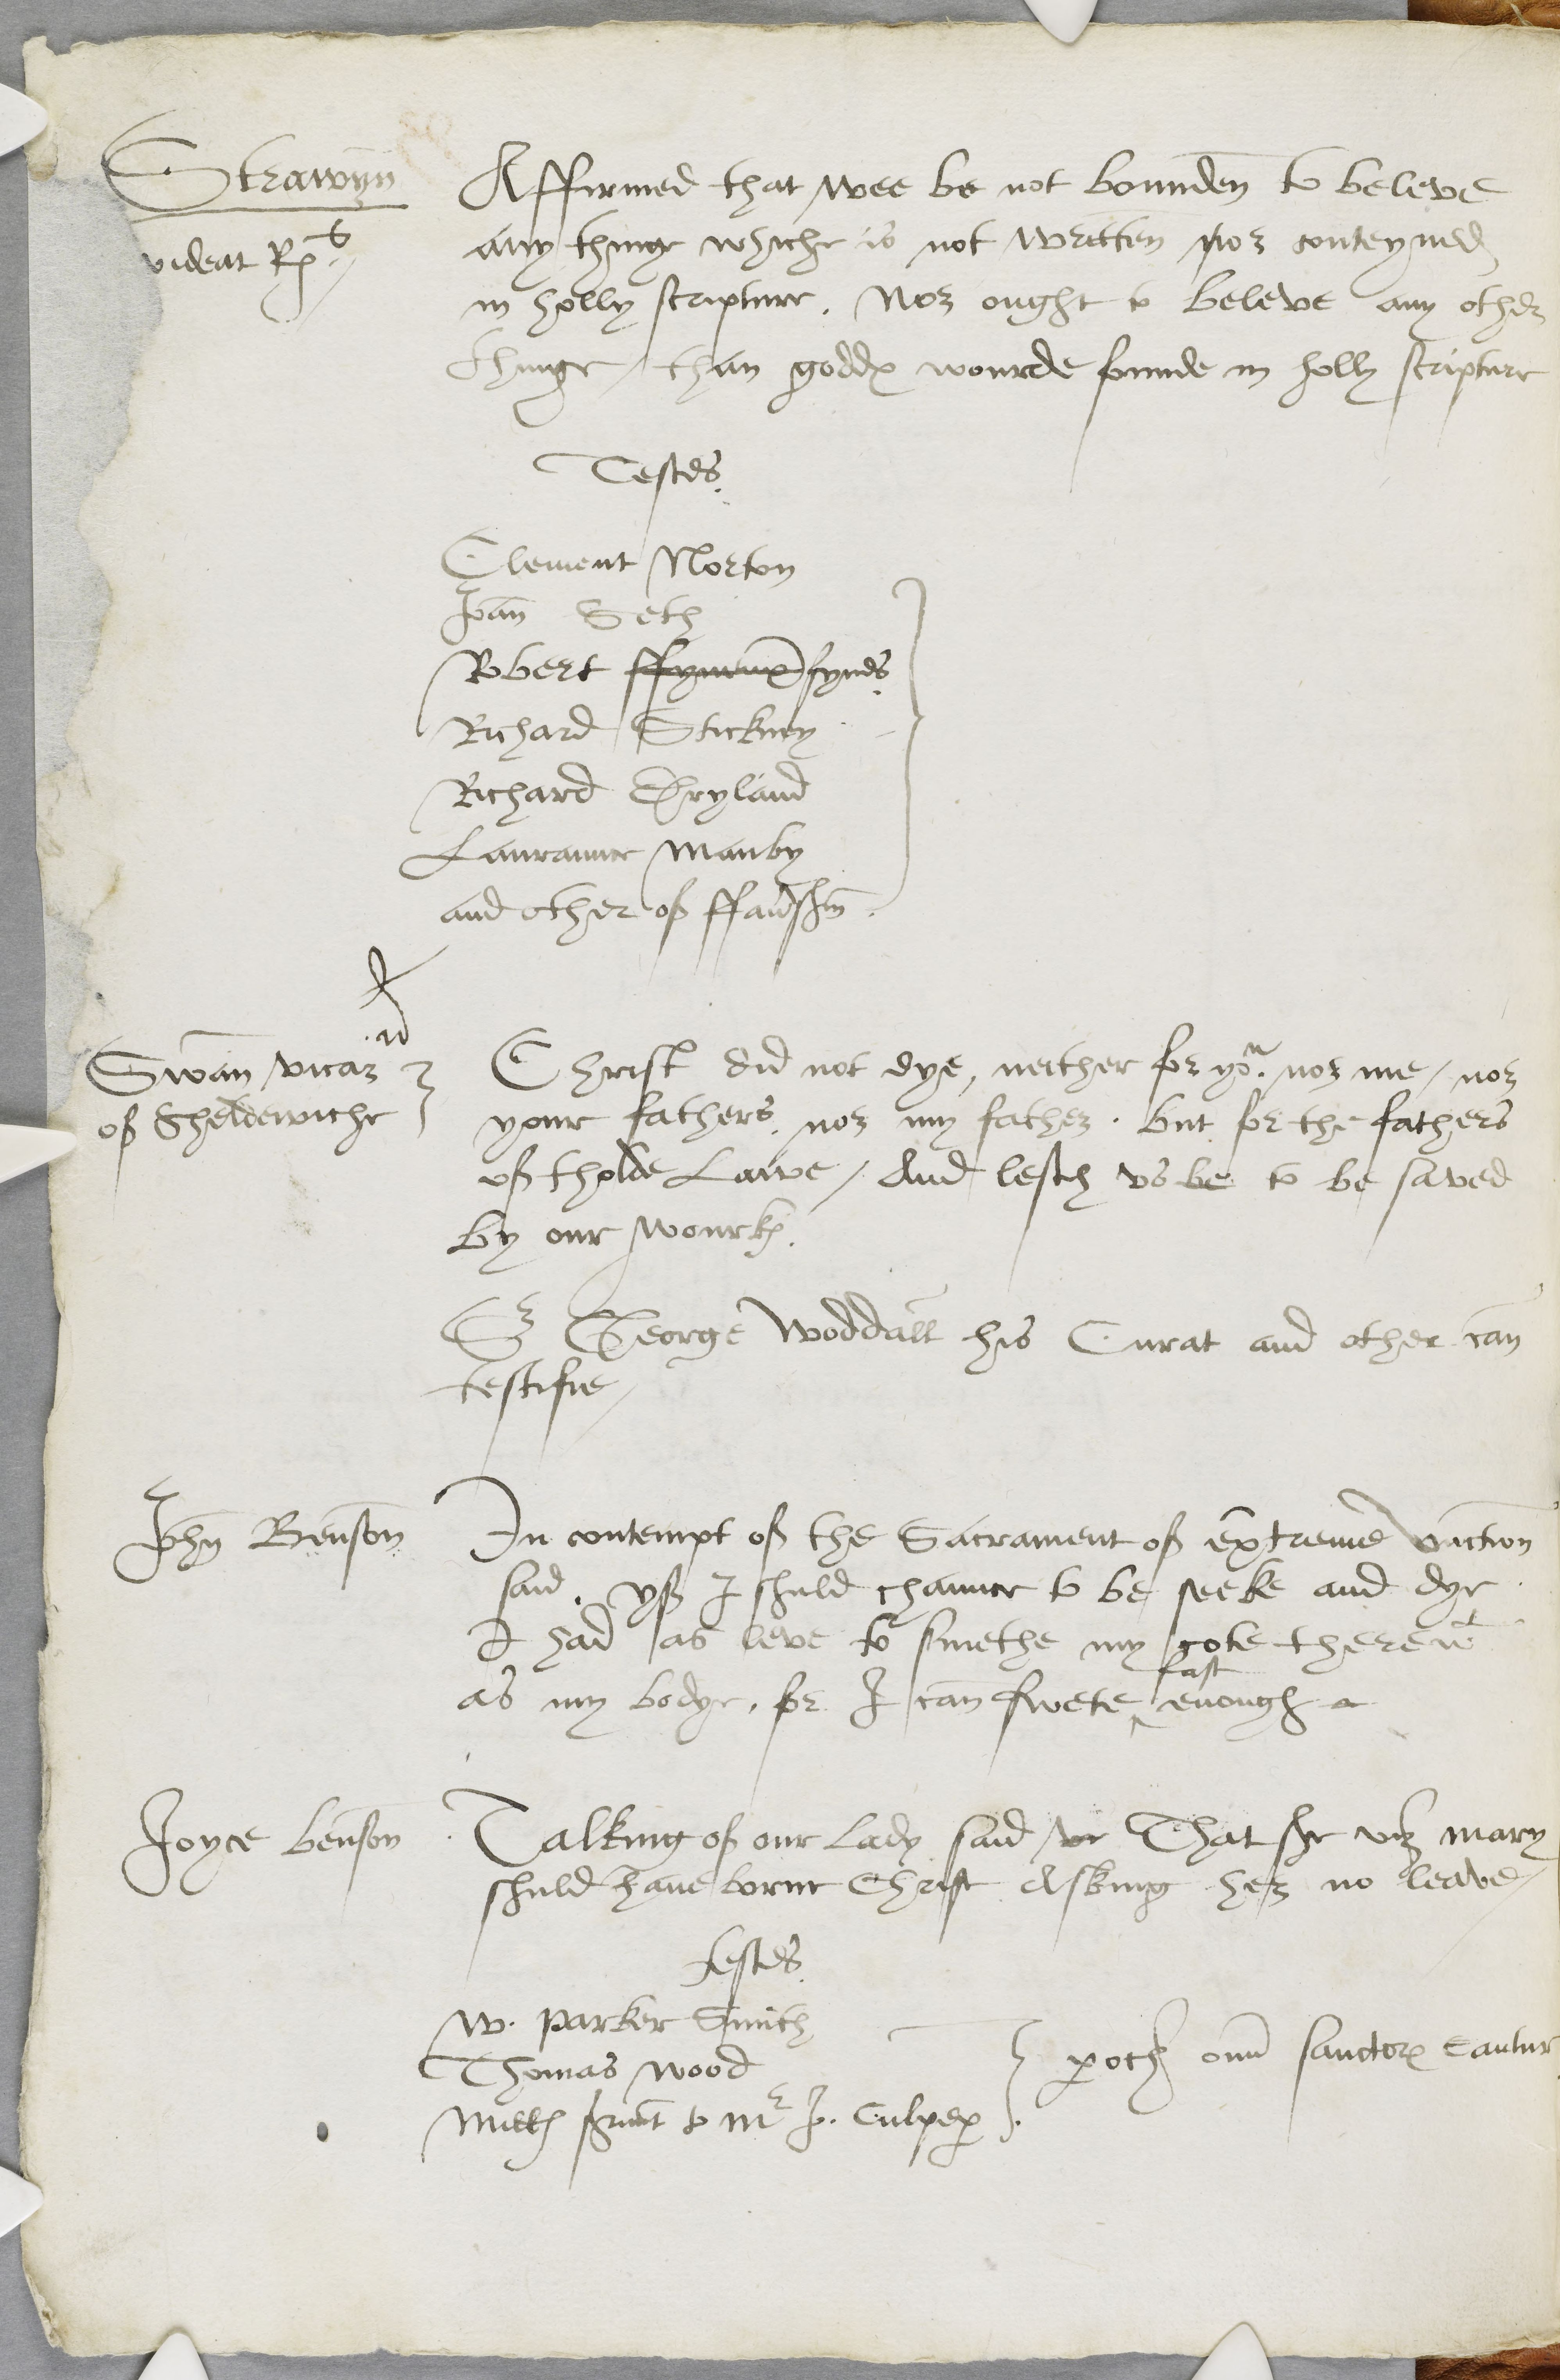 Strawyn
videat R
Affirmed that wee be not bounden to beleve
any thinge whiche is not written nor conteyned
in holly scripture. Nor ought to beleve any other
thinge / than godds wourde founde in holly scripture
Testes.
Clement Norton
Joan Seth
Robert fynes
Richard Stickney
Richard Dryland
Lauraunce Manby
and other of ffavershm.
Swan vicar
of Sheldewiche
Christ did not dye, neither for yo.u nor me / nor
youre fathers, nor my father. but for the fathers
of tholde Lawe / And lefth us be to be saved
by our wourks.
Sr George Woddall his Curat and other can
testifie /
John Benson
In contempt of the Sacrament of extreme unction
said. yf I shuld chaunce to be seeke and dye
I had as leve to smethe my cote therewt
as my bodye, for I can swete fast enough
Joyce benson
Talking of our Lady said That she viz mary
shuld have borne Christ Asking her no leave /
testes.
W. Parker Smith
Thomas Wood
servnt to Mr J. Culpeper
poch omn sanctor Cantur